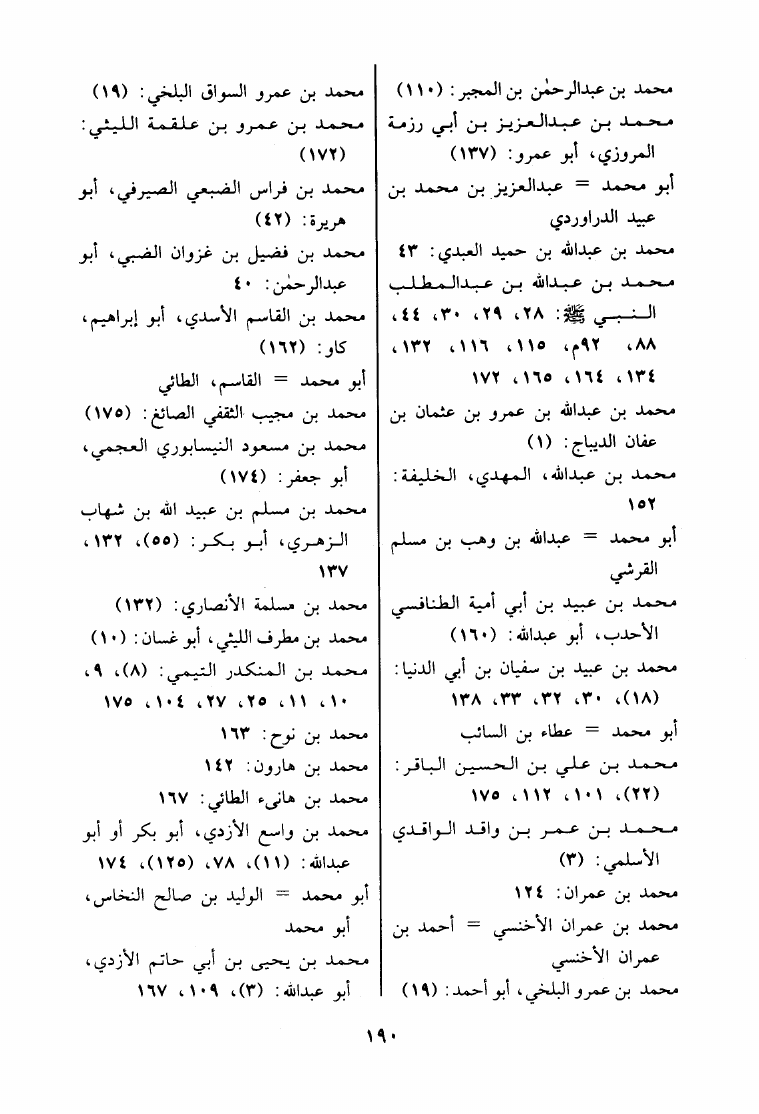 محمد بن عبدالرحمٰن بن المجبر: (١١٠)
محمد بن عبدالعزيز بن أبي رزمة
المروزي، أبو عمرو: (١٣٧)
أبو محمد = عبدالعزيز بن محمد بن
عبيد الدراوردي
محمد بن عبدالله بن حميد العبدي: ٤٣
محمد بن عبدالله بن عبدالمطلب
النبي ﷺ: ٢٨، ٢٩، ٣٠، ٤٤،
٨٨، ٩٢م، ١١٥، ١١٦، ١٣٢،
١٣٤، ١٦٤، ١٦٥، ١٧٢
محمد بن عبدالله بن عمرو بن عثمان بن
عفان الديباج: (١)
محمد بن عبدالله، المهدي، الخليفة:
١٥٢
أبو محمد = عبدالله بن وهب بن مسلم
القرشي
محمد بن عبيد بن أبي أمية الطنافسي
الأحدب، أبو عبدالله: (١٦٠)
محمد بن عبيد بن سفيان بن أبي الدنيا:
(١٨)، ٣٠، ٣٢، ٣٣، ١٣٨
أبو محمد = عطاء بن السائب
محمد بن علي بن الحسين الباقر:
(٢٢)، ١٠١، ١١٢، ١٧٥
محمد بن عمر بن واقد الواقدي
الأسلمي: (٣)
محمد بن عمران: ١٢٤
محمد بن عمران الأخنسي = أحمد بن
عمران الأخنسي
محمد بن عمرو البلخي، أبو أحمد: (١٩)
محمد بن عمرو السواق البلخي: (١٩)
محمد بن عمرو بن علقمة الليثي:
(١٧٢)
محمد بن فراس الضبعي الصيرفي، أبو
هريرة: (٤٢)
محمد بن فضيل بن غزوان الضبي، أبو
عبدالرحمٰن: ٤٠
محمد بن القاسم الأسدي، أبو إبراهيم،
كاو: (١٦٢)
أبو محمد = القاسم، الطائي
محمد بن مجيب الثقفي الصائغ: (١٧٥)
محمد بن مسعود النيسابوري العجمي،
أبو جعفر: (١٧٤)
محمد بن مسلم بن عبيد الله بن شهاب
الزهري، أبو بكر: (٥٥)، ١٣٢،
١٣٧
محمد بن مسلمة الأنصاري: (١٣٢)
محمد بن مطرف الليثي، أبو غسان: (١٠)
محمد بن المنكدر التيمي: (٨)، ٩،
١٠، ١١، ٢٥، ٢٧، ١٠٤، ١٧٥
محمد بن نوح: ١٦٣
محمد بن هارون: ١٤٢
محمد بن هانىء الطائي: ١٦٧
محمد بن واسع الأزدي، أبو بكر أو أبو
عبدالله: (١١)، ٧٨، (١٢٥)، ١٧٤
أبو محمد = الوليد بن صالح النخاس،
أبو محمد
محمد بن يحيى بن أبي حاتم الأزدي،
أبو عبدالله: (٣)، ١٠٩، ١٦٧
١٩٠